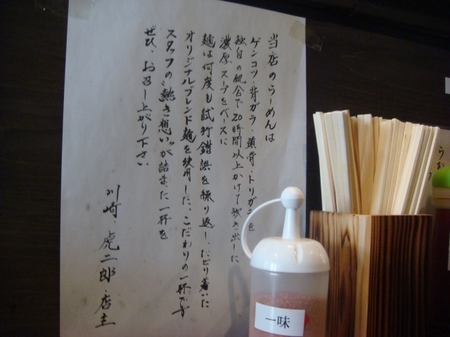 当店のらーめんは
ゲンコツ・背ガラ・頭骨・トリガラを
独自の配合で20時間以上かけて炊き出した
濃厚スープをベースに
麺は何度も試行錯誤を繰り返し、たどり着いた
オリジナルブレンド麺を使用した、こだわりの一杯です
スタッフの"熱き想い"が詰まった一杯を
ぜひ、お召し上がり下さい。
川崎 虎二郎 店主
一味